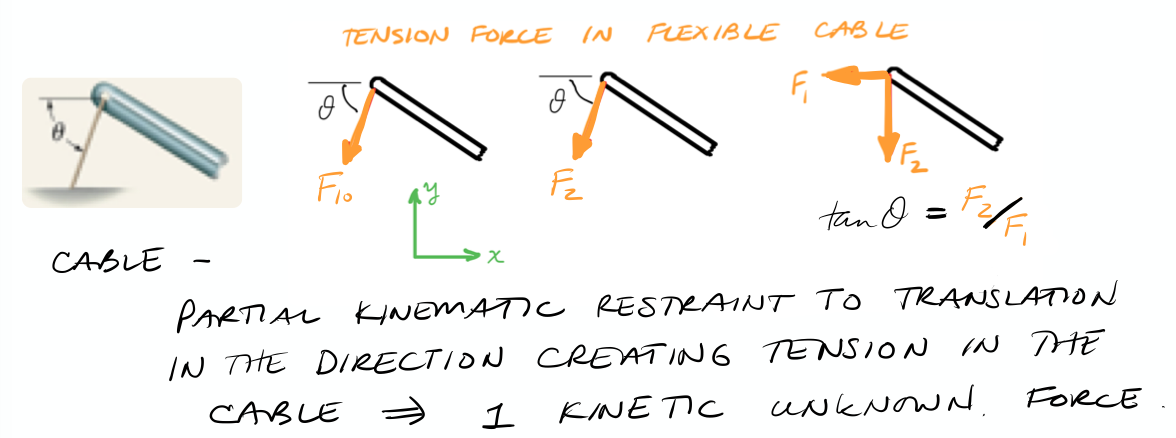 TENSION FORCE IN FLEXIBLE CABLE
θ
θ
F₁₀
θ
F₂
F₁
F₂
y
x
tan θ = F₂/F₁
CABLE -
PARTIAL KINEMATIC RESTRAINT TO TRANSLATION
IN THE DIRECTION CREATING TENSION IN THE
CABLE ⇒ 1 KINETIC UNKNOWN. FORCE.